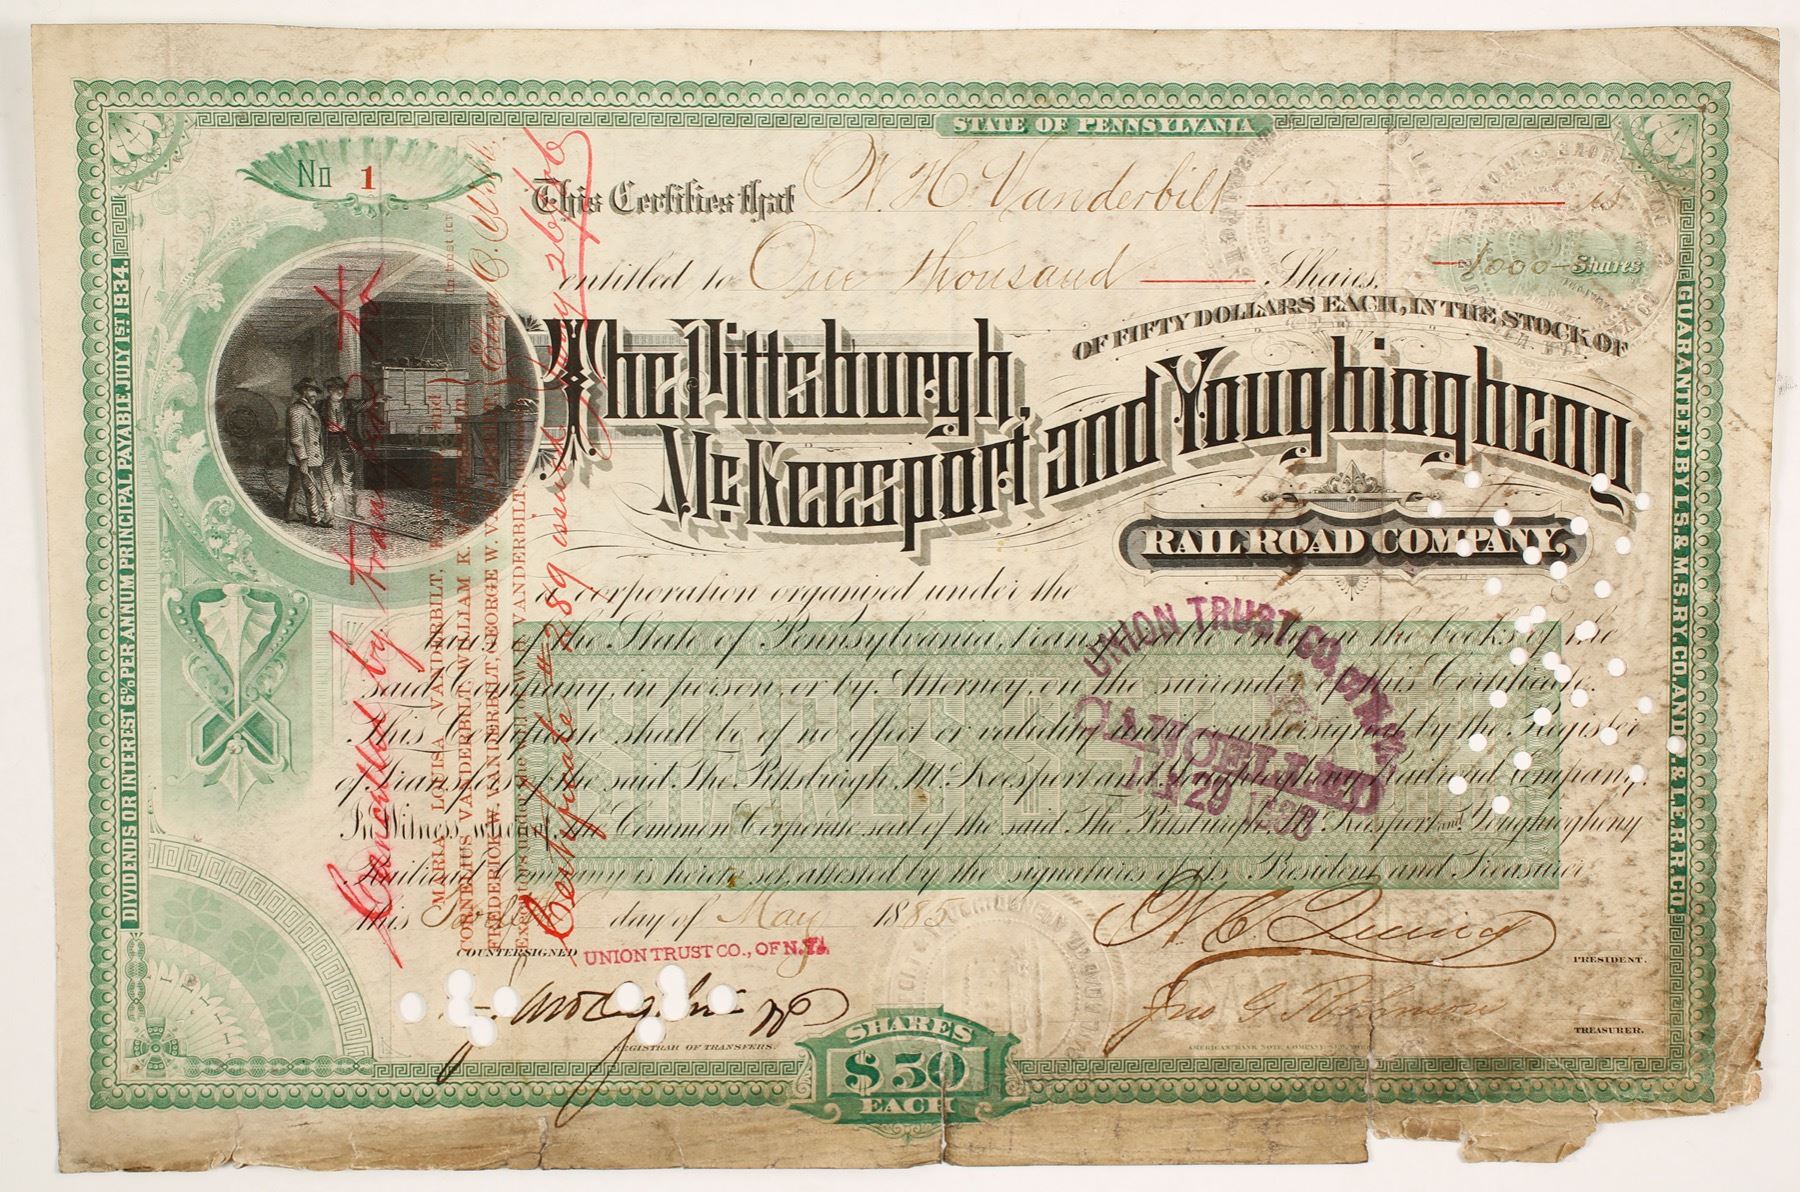 STATE OF PENNSYLVANIA
No 1
This Certifies that W. H Vanderbilt is
entitled to One thousand Shares, 1000 Shares
OF FIFTY DOLLARS EACH, IN THE STOCK OF
The Pittsburgh,
McKeesport and Youghiogheny
RAIL ROAD COMPANY,
a Corporation organized under the
laws of the State of Pennsylvania, transferable only on the books of the
said Company, in person or by Attorney, on the surrender of this Certificate.
This Certificate shall be of no effect or validity until countersigned by the Register
of Transfers of the said The Pittsburgh, McKeesport and Youghiogheny Railroad company.
In Witness whereof, the Common Corporate seal of the said The Pittsburgh, McKeesport and Youghiogheny
Railroad Company is hereto set, attested by the signatures of its President and Treasurer
this day of May 1885
COUNTERSIGNED UNION TRUST CO., OF N.Y.
REGISTRAR OF TRANSFERS.
PRESIDENT.
Jno G. Robinson
TREASURER.
AMERICAN BANK NOTE COMPANY, NEW YORK.
SHARES
$50
EACH
DIVIDENDS OR INTEREST 6% PER ANNUM PRINCIPAL PAYABLE JULY 1ST 1934.
GUARANTEED BY L.S. & M.S. RY. CO. AND P. & L.E. R.R. CO.
UNION TRUST CO. OF N.Y.
CANCELLED
Cancelled by
In trust for
MARIA LOUISA VANDERBILT,
CORNELIUS VANDERBILT, WILLIAM K.
FREDERICK W. VANDERBILT, GEORGE W.
Executors under the will of WM. H. VANDERBILT
Certificate # 289 issued